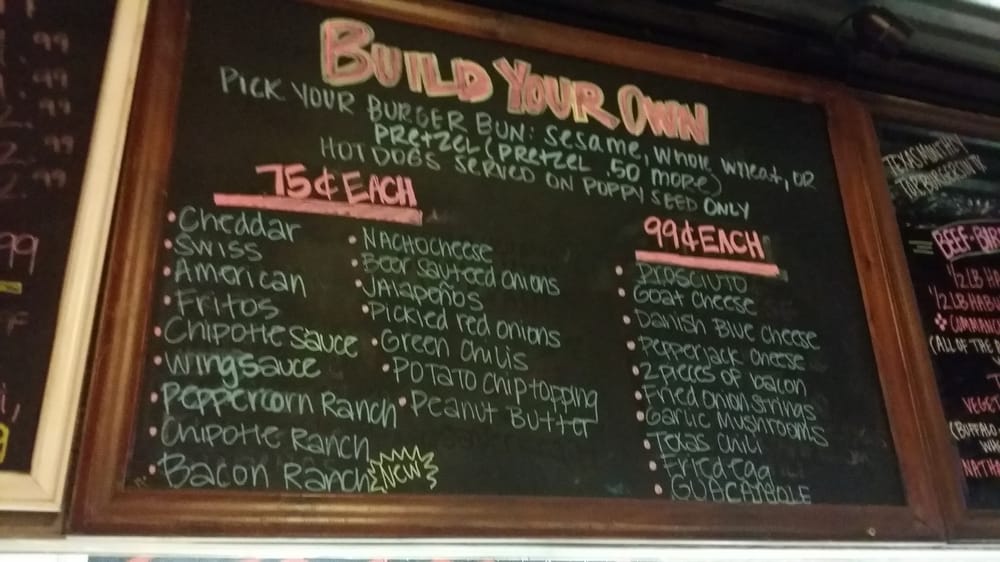 BUILD YOUR OWN
PICK YOUR BURGER BUN: sesame, whole wheat, OR
PRETZEL (PRETZEL .50 MORE)
HOT DOGS SERVED ON POPPY SEED ONLY
75¢ EACH
• Cheddar
• SWISS
• American
• FRITOS
• Chipotle sauce
• wingsauce
• Peppercorn Ranch
• Chipotle Ranch
• Bacon Ranch NEW
• NACHO cheese
• Beer sauteed onions
• JAlapeños
• Pickled red onions
• Green Chilis
• POTATO chip topping
• Peanut Butter
99¢ EACH
• Prosciuto
• Goat cheese
• Danish Blue cheese
• Pepperjack cheese
• 2 pieces of bacon
• Fried onion strings
• Garlic Mushrooms
• Texas chili
• Fried egg
• GUACAMOLE
.99
.99
.99
.99
99
TEXAS MONTHLY
BEEF-
1/2 LB
1/2 LB
(ALL OF THE
(BUFFALO